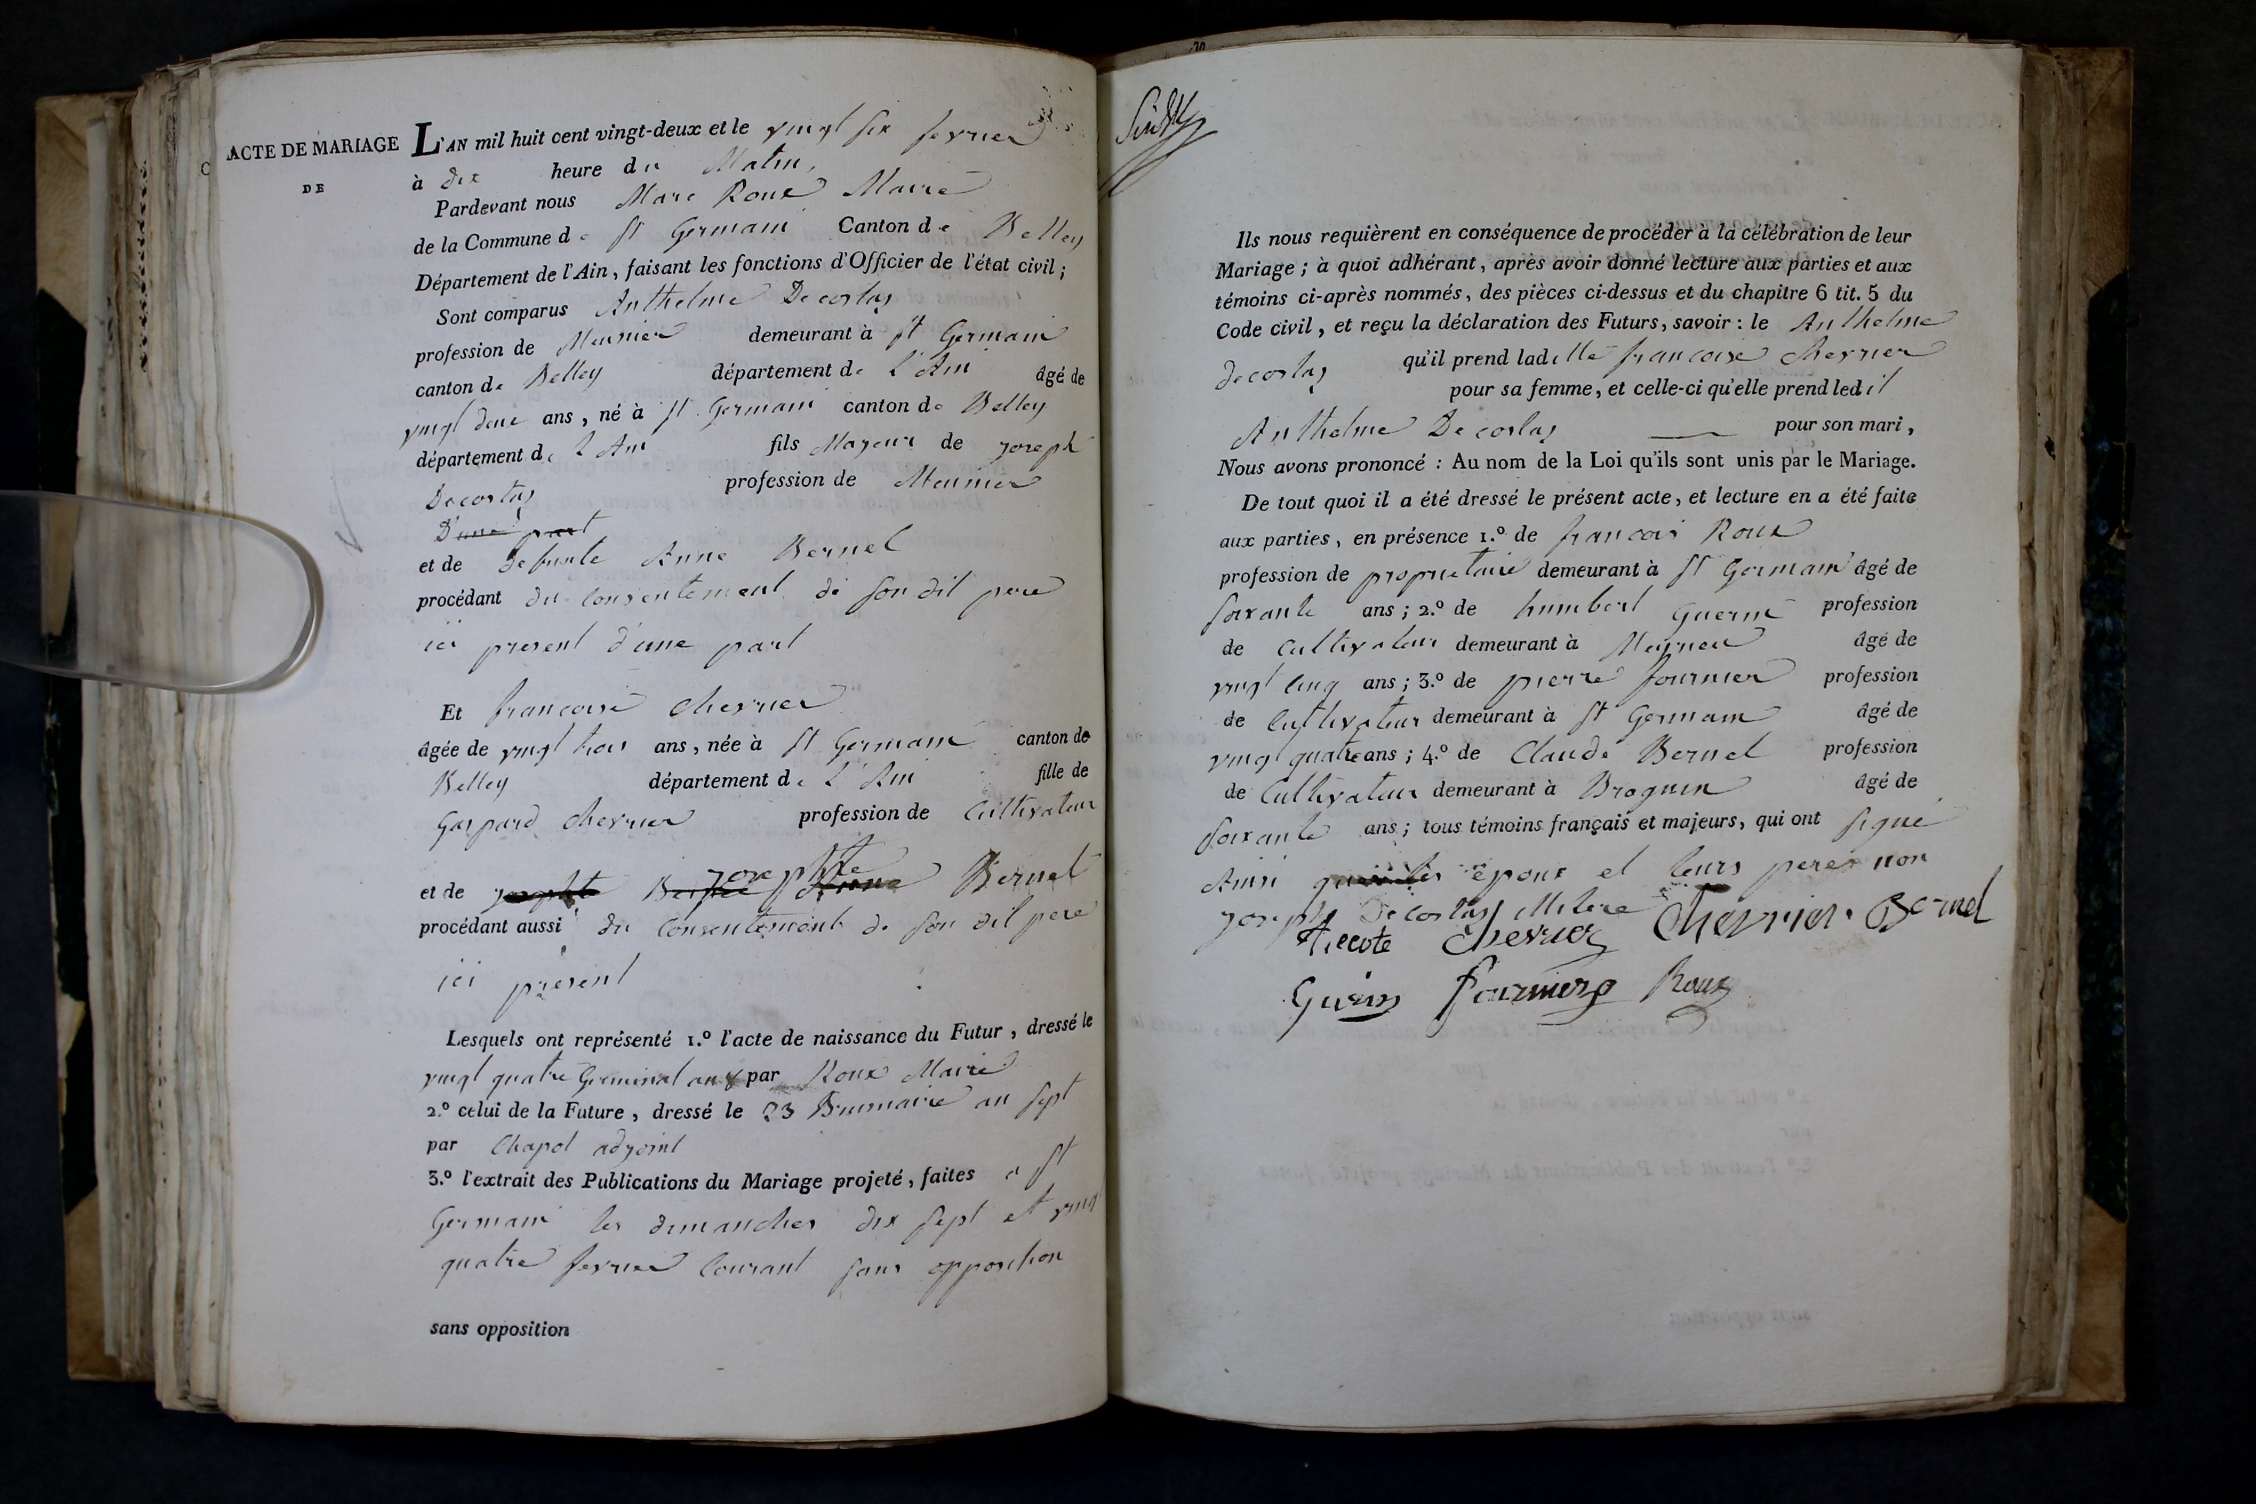 ACTE DE MARIAGE
DE
L'AN mil huit cent vingt-deux et le vingt six fevrier
à dix heure du Matin,
Pardevant nous Marc Roux Maire
de la Commune de St Germain Canton de Belley
Département de l'Ain, faisant les fonctions d'Officier de l'état civil;
Sont comparus Anthelme Decostas
profession de Meunier demeurant à St Germain
canton de Belley département de L'Ain âgé de
vingt deux ans, né à St Germain canton de Belley
département de L'Ain fils Majeur de Joseph
Decostas profession de Meunier
D'une part
et de defunte Anne Bernel
procédant du consentement de son dit pere
ici present d'une part
Et francoise chevrier
âgée de vingt trois ans, née à St Germain canton de
Belley département de L'Ain fille de
Gaspard chevrier profession de Cultivateur
josephte
et de Bernel
procédant aussi du Consentement de son dit pere
ici present
Lesquels ont représenté 1.º l'acte de naissance du Futur, dressé le
vingt quatre Germinal an 8 par Roux Maire
2.º celui de la Future, dressé le 23 Brumaire an sept
par Chapot adjoint
3.º l'extrait des Publications du Mariage projeté, faites a St
Germain les dimanches dix sept et vingt
quatre fevrier Courant sans opposition
sans opposition
Ils nous requièrent en conséquence de procéder à la célébration de leur
Mariage; à quoi adhérant, après avoir donné lecture aux parties et aux
témoins ci-après nommés, des pièces ci-dessus et du chapitre 6 tit. 5 du
Code civil, et reçu la déclaration des Futurs, savoir: le Anthelme
decostas qu'il prend ladite francoise chevrier
pour sa femme, et celle-ci qu'elle prend ledit
Anthelme Decostas pour son mari,
Nous avons prononcé: Au nom de la Loi qu'ils sont unis par le Mariage.
De tout quoi il a été dressé le présent acte, et lecture en a été faite
aux parties, en présence 1.º de francois Roux
profession de proprietaire demeurant à St Germain âgé de
soixante ans; 2.º de humbert Guerin profession
de Cultivateur demeurant à âgé de
vingt cinq ans; 3.º de pierre fournier profession
de Cultivateur demeurant à St Germain âgé de
vingt quatre ans; 4.º de Claude Bernel profession
de Cultivateur demeurant à Brognin âgé de
soixante ans; tous témoins français et majeurs, qui ont signé
Ainsi que les epoux et leurs peres non
joseph Decostas
chevrier Chevrier Bernel
Guerin fournier Roux